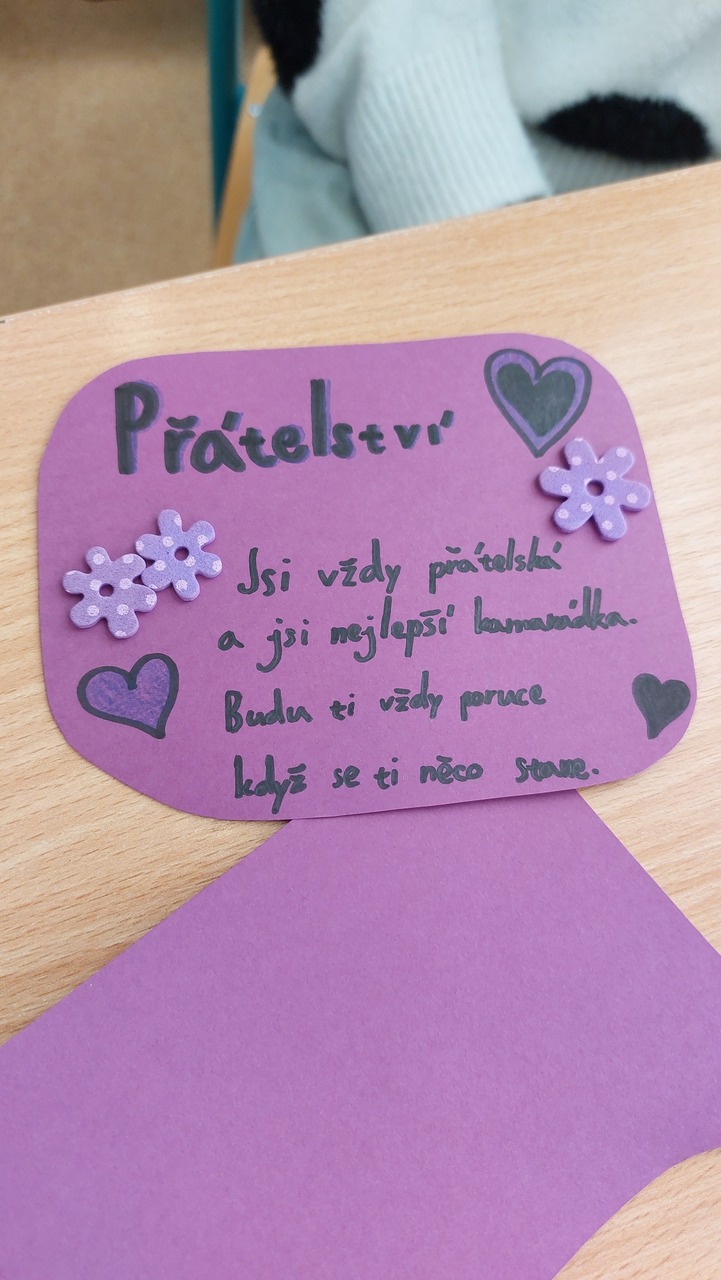 Přátelství
Jsi vždy přátelská
a jsi nejlepší kamarádka.
Budu ti vždy poruce
když se ti něco stane.